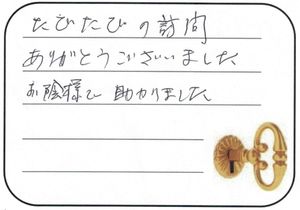 たびたびの訪問
ありがとうございました
お陰様で助かりました